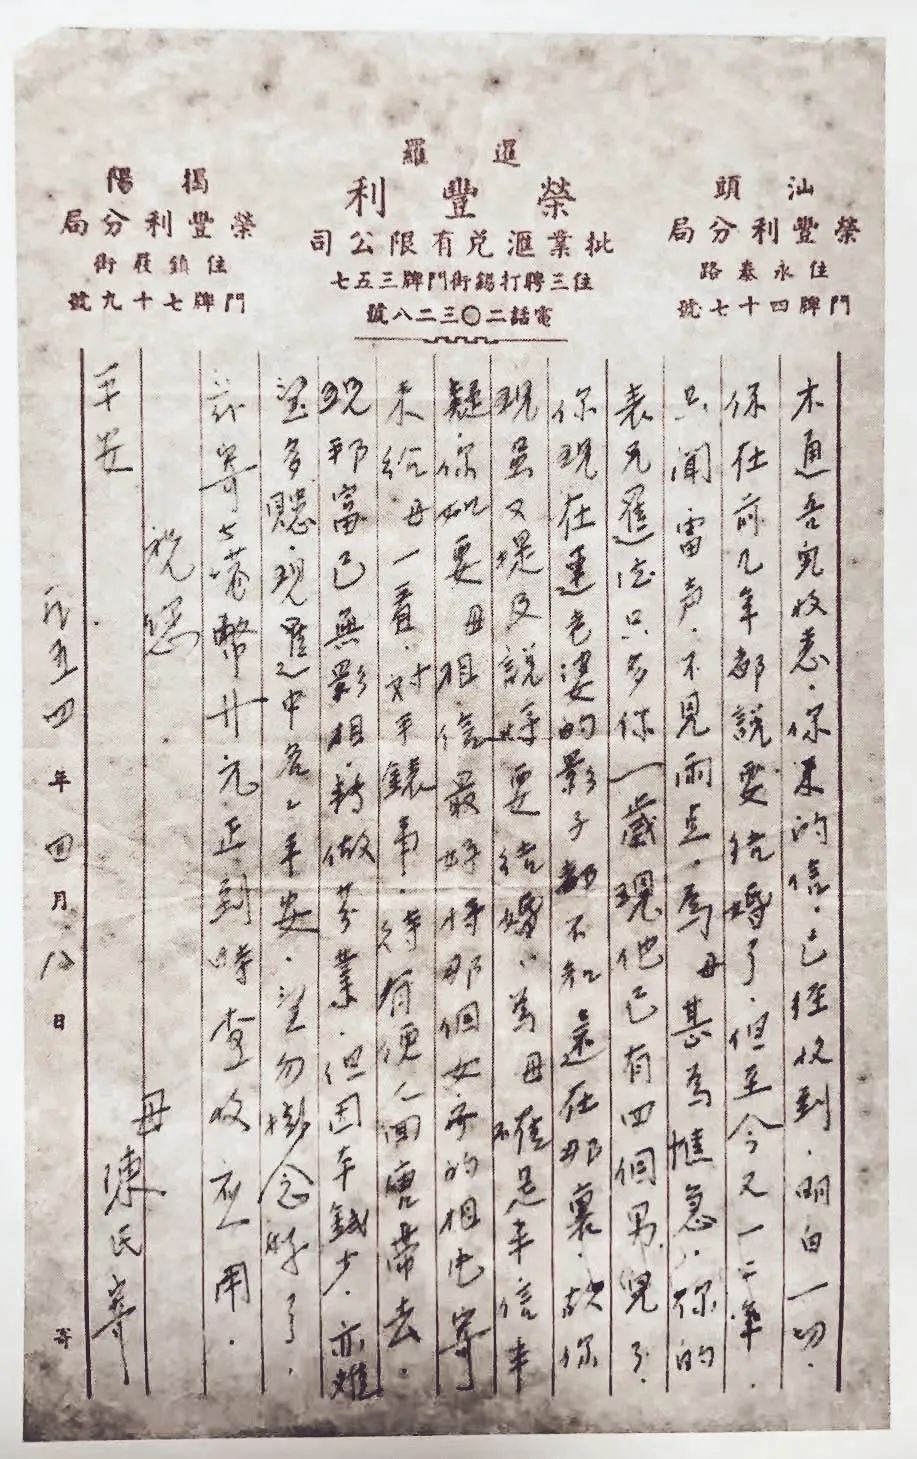 暹羅
榮豐利
批業滙兌有限公司
住三聘打錫街門牌三五七
電話二〇三二八號
汕頭
榮豐利分局
住永泰路
門牌四十七號
揭陽
榮豐利分局
住鎮
街
門牌七十九號
木通吾兒收悉.你來的信.已經收到.明白一切.
你在前几年都說要結婚了.但至今又一二年.
只聞雷声.不見雨点.為母甚為憔急.你的
表兄暹徃只多你一歲現他已有四個男兒了.
你現在連老婆的影子都不知還在那裏.故你
現虽又提及說好要結婚.為母確是半信半
疑你如要母相信最好将那個女子的相片寄
来給母一看.对手錶弟.待有便人回唐帶去.
現邦富已無影相.轉做芽業.但因本錢少.亦难
望多賺.現暹中各人平安.望勿掛念好了.
茲寄去港幣廿元正到時查收应用.
祝您
平安
母 陳氏寄
一九五四年四月八日
寄